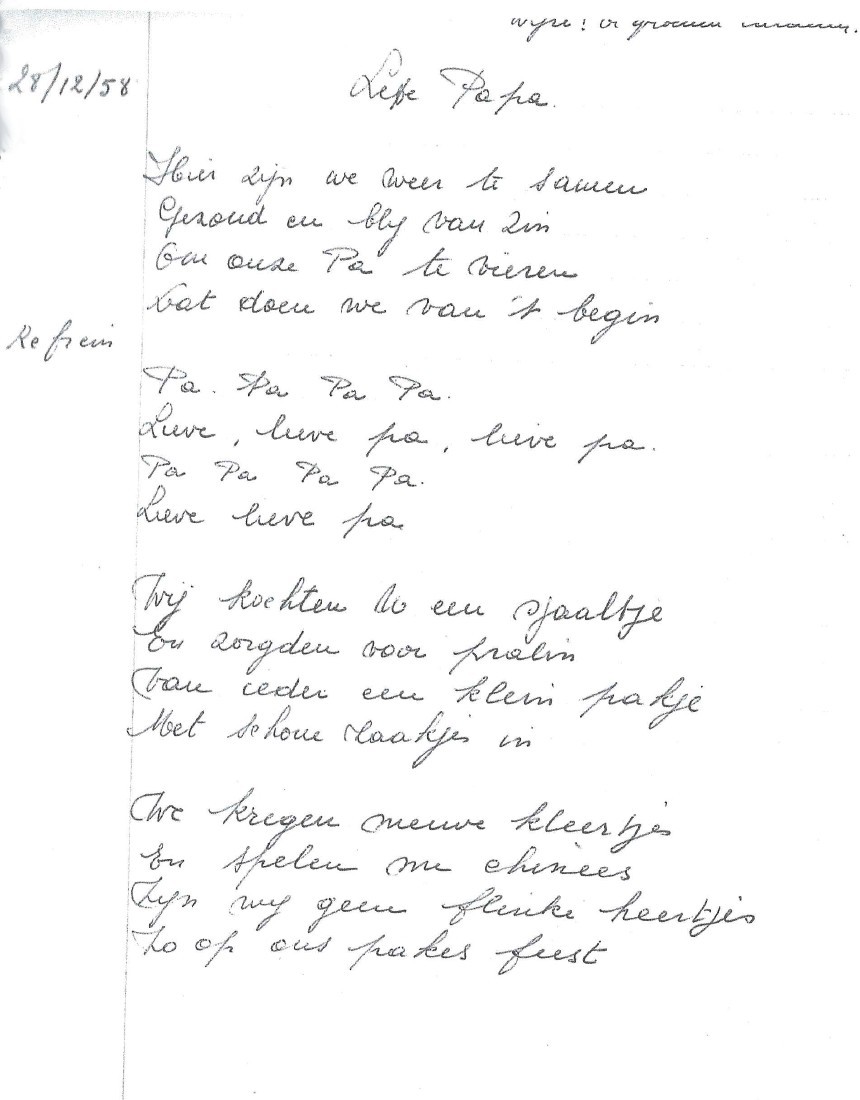 wyse: 
28/12/58
Liefe Papa.
Hier zijn we weer te samen
Gezond en bly van zin
Om onze Pa te vieren
Dat doen we van 't begin
Refrein
Pa. Pa Pa Pa.
Lieve, lieve pa, lieve pa.
Pa Pa Pa Pa.
Lieve lieve pa
Wij kochten U een sjaaltje
En zorgden voor pralin
Van ieder een klein pakje
Met schone zaakjes in
We kregen nieuwe kleertjes
En spelen nu chinees
Zyn wy geen flinke heertjes
Zo op ons pakes feest